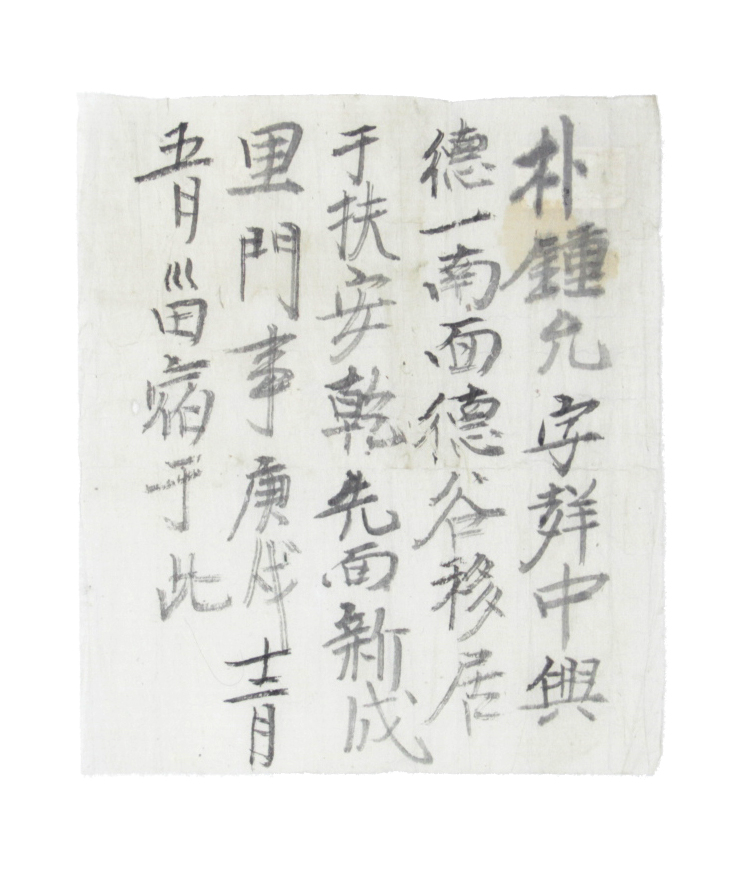 朴鍾允字群中興
德一南面德谷移居
于扶安乾先面新成
里門事庚戌十二月
五月甾宿于此